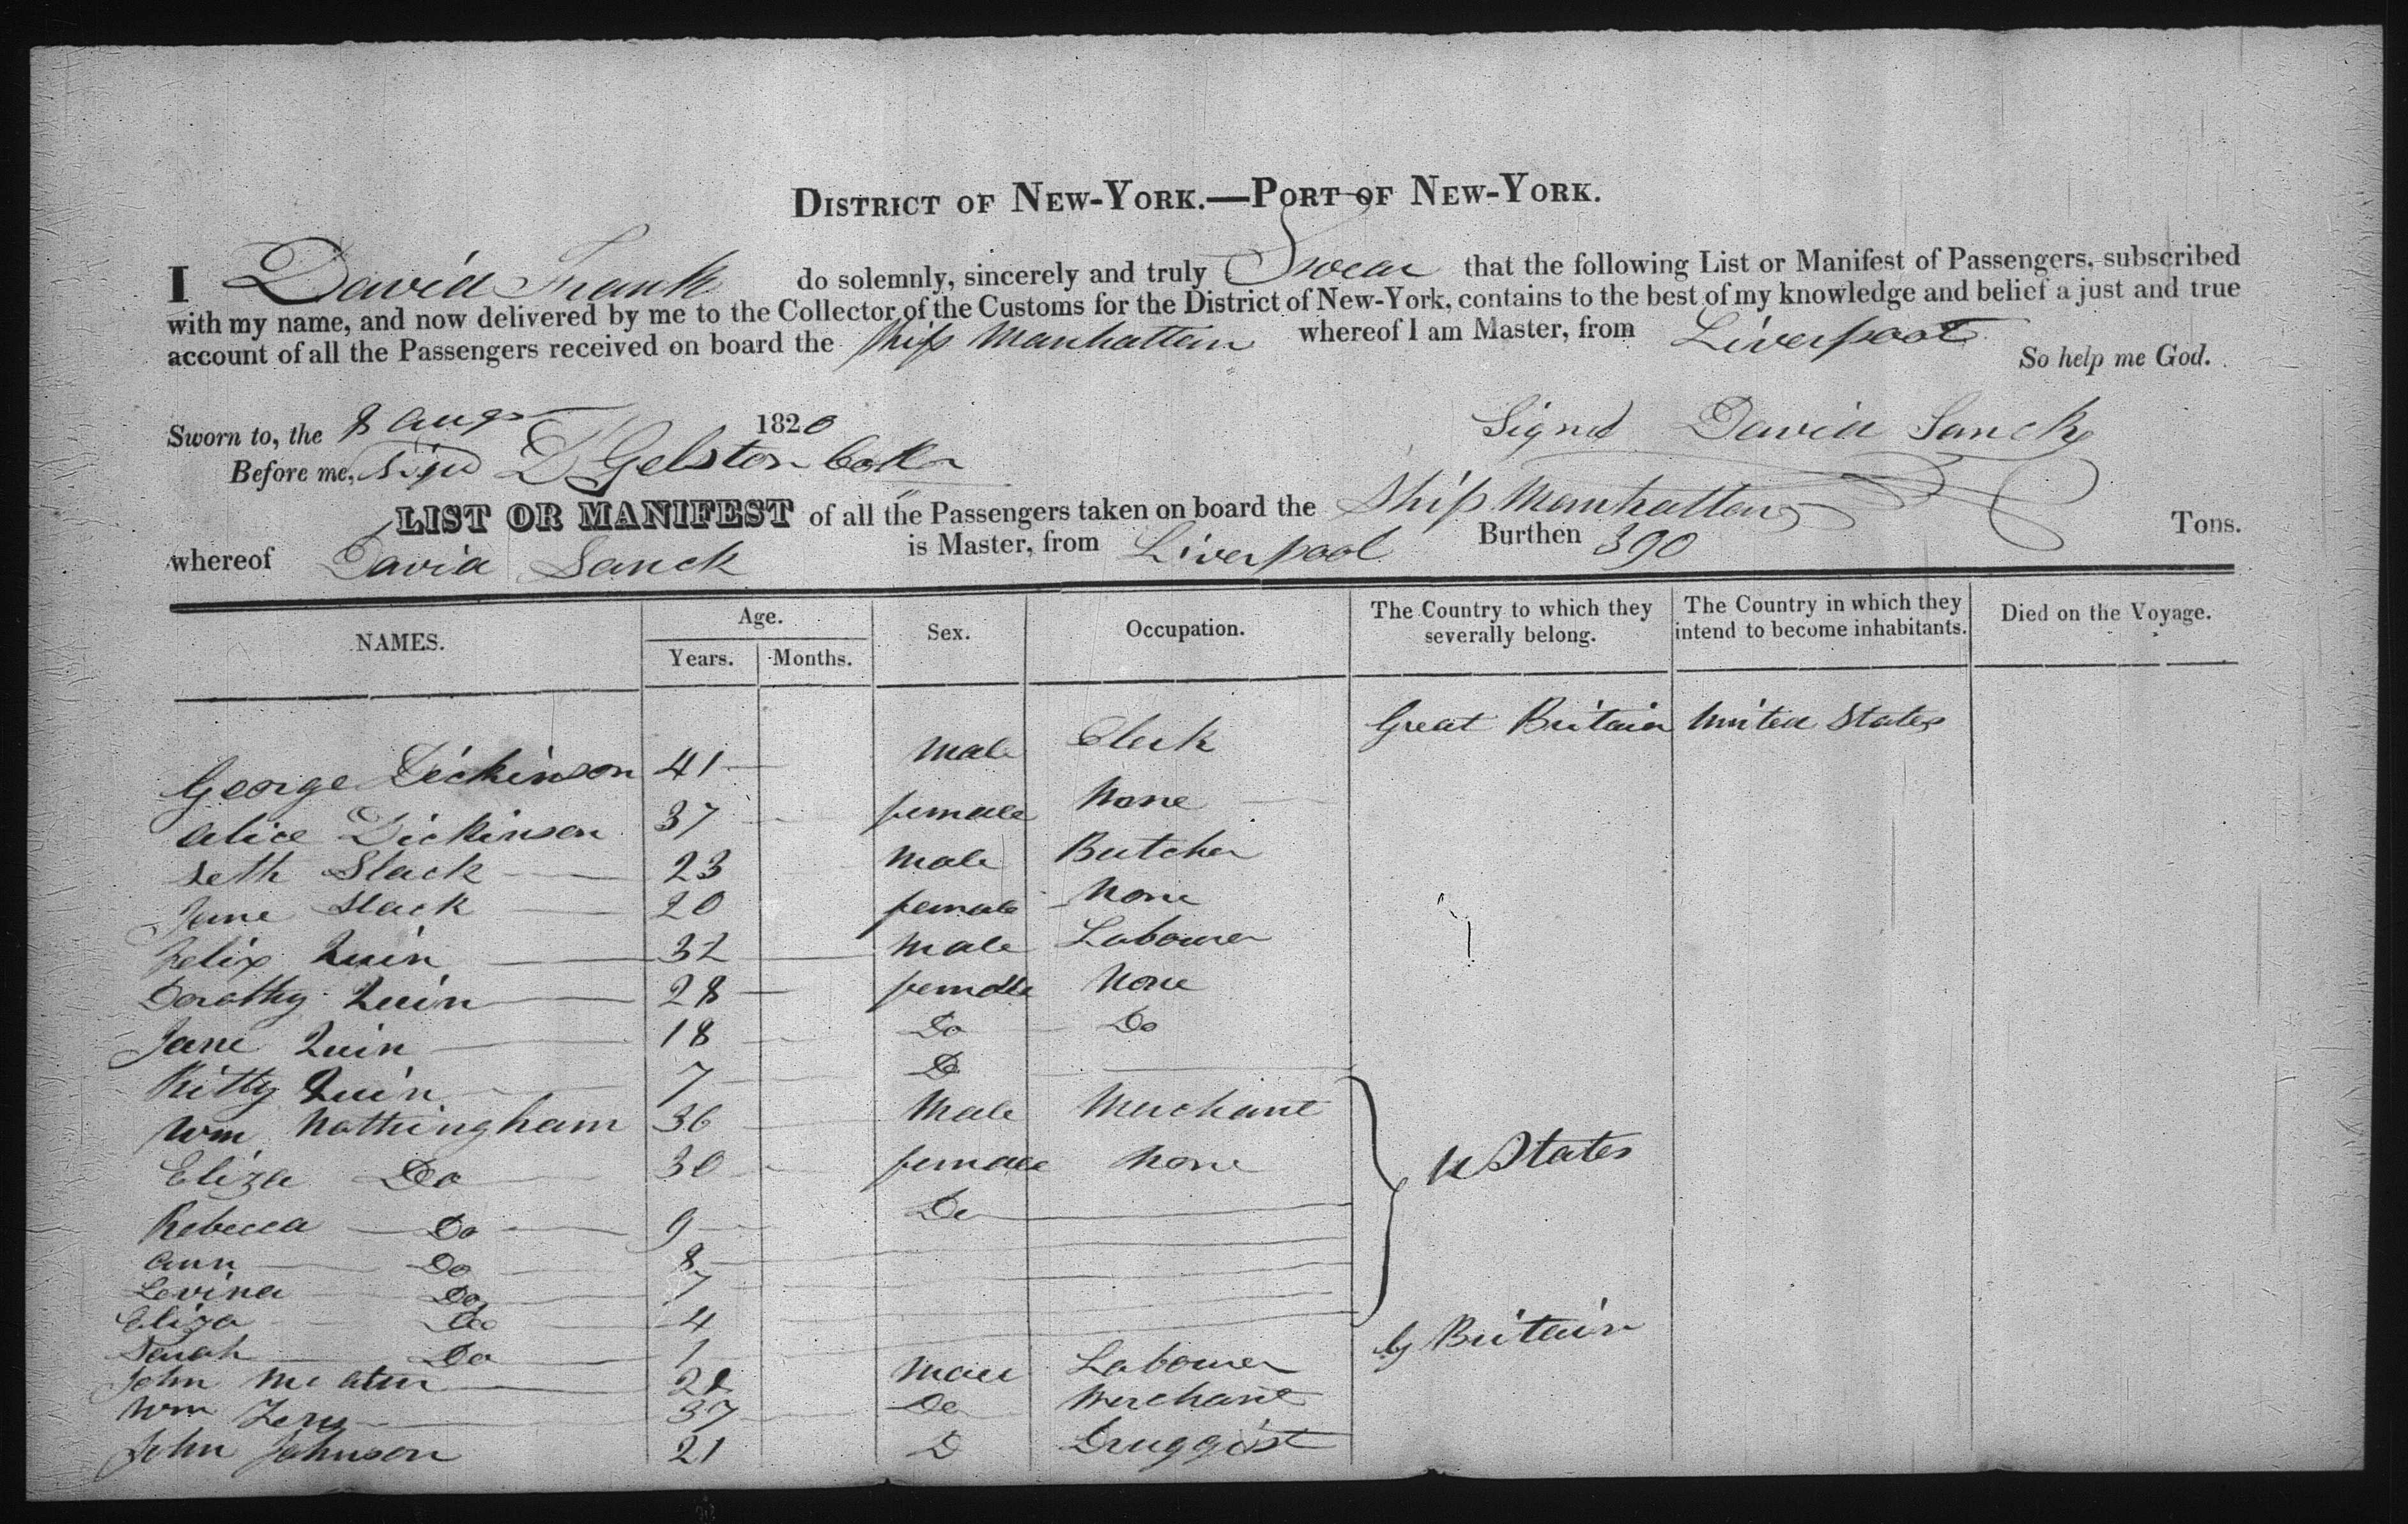 DISTRICT OF NEW-YORK.—PORT OF NEW-YORK.
I David Frank do solemnly, sincerely and truly Swear that the following List or Manifest of Passengers, subscribed
with my name, and now delivered by me to the Collector of the Customs for the District of New-York, contains to the best of my knowledge and belief a just and true
account of all the Passengers received on board the Ship Manhattan whereof I am Master, from Liverpool
So help me God.
Sworn to, the 8 Augt 1820 Signed David Sanck
Before me, D Gelston Collr
LIST OR MANIFEST of all the Passengers taken on board the Ship Manhattan
whereof David Sanck is Master, from Liverpool Burthen 390 Tons.
NAMES. Age. Years. Months. Sex. Occupation. The Country to which they severally belong. The Country in which they intend to become inhabitants. Died on the Voyage.
George Dickinson 41 Male Clerk Great Britain United States
Alice Dickinson 37 female None
Seth Slack 23 Male Butcher
Jane Slack 20 female None
Felix Quin 32 Male Labourer
Dorothy Quin 28 female None
Jane Quin 18 Do Do
Kitty Quin 7 Do
Wm Nottingham 36 Male Merchant
Eliza Do 30 female None U States
Rebecca Do 9 Do
Ann Do 8
Levina Do 7
Eliza Do 4
Sarah Do 1
John Mc 22 Male Labourer G Britain
Wm 37 Do Merchant
John Johnson 21 D Druggist